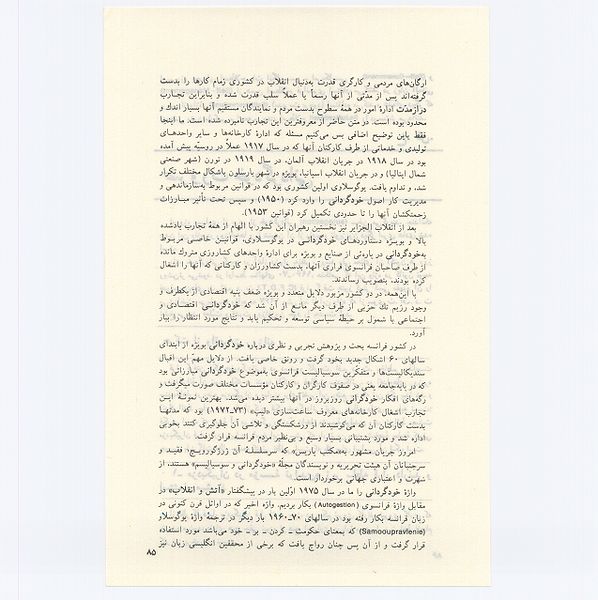 ارگان‌های مردمی و کارگری قدرت به‌دنبال انقلاب در کشوری زمام کارها را بدست
گرفته‌اند پس از مدتی از آنها رسماً یا عملاً سلب قدرت شده و بنابراین تجارب
درازمدت ادارهٔ امور در همهٔ سطوح بدست مردم و نمایندگان مستقیم آنها بسیار اندك و
محدود بوده است. در متن حاضر از معروفترین این تجارب نامبرده شده است. ما اینجا
فقط باین توضیح اضافی بس می‌کنیم مسئله که ادارهٔ کارخانه‌ها و سایر واحدهای
تولیدی و خدماتی از طرف کارکنان آنها که در سال ۱۹۱۷ عملاً در روسیه پیش آمده
بود در سال ۱۹۱۸ در جریان انقلاب آلمان، در سال ۱۹۱۹ در تورن (شهر صنعتی
شمال ایتالیا) و در جریان انقلاب اسپانیا، بویژه در شهر بارسلون باشکال مختلف تکرار
شد، و تداوم یافت. یوگوسلاوی اولین کشوری بود که در قوانین مربوط به‌سازماندهی و
مدیریت کار اصول خودگردانی را وارد کرد (۱۹۵۰) و سپس تحت تأثیر مبارزات
زحمتکشان آنها را تا حدودی تکمیل کرد (قوانین ۱۹۵۳).
بعد از انقلاب الجزایر نیز نخستین رهبران این کشور با الهام از همهٔ تجارب یادشده
بالا و بویژه دستاوردهای خودگردانی در یوگوسلاوی، قوانین خاصی مربوط
به‌خودگردانی در پاره‌ئی از صنایع و بویژه برای ادارهٔ واحدهای کشاورزی متروك مانده
از طرف صاحبان فرانسوی فراری آنها، بدست کشاورزان و کارکنانی که آنها را اشغال
کرده بودند، بتصویب رساندند.
با این‌همه، در دو کشور مزبور دلایل متعدد و بویژه ضعف بنیه اقتصادی از یکطرف و
وجود رژیم تك حزبی از طرف دیگر مانع از آن شد که خودگردانی اقتصادی و
اجتماعی با شمول بر حیطهٔ سیاسی توسعه و تحکیم یابد و نتایج مورد انتظار را ببار
آورد.
در کشور فرانسه بحث و پژوهش تجربی و نظری درباره خودگردانی بویژه از ابتدای
سالهای ۶۰ اشکال جدید بخود گرفت و رونق خاصی یافت. از دلایل مهم این اقبال
سندیکالیست‌ها و متفکرین سوسیالیست فرانسوی به‌موضوع خودگردانی مبارزاتی بود
که در پایه‌جامعه یعنی در صفوف کارگران و کارکنان مؤسسات مختلف صورت میگرفت و
رگه‌های افکار خودگرائی روزبروز در آنها بیشتر دیده می‌شد. بهترین نمونهٔ این
تجارب اشغال کارخانه‌های معروف ساعت‌سازی «لیپ» (۷۳ـ۱۹۷۲) بود که مدتها
بدست کارکنان آن که می‌کوشیدند از ورشکستگی و تلاشی آن جلوگیری کنند بخوبی
اداره شد و مورد پشتیبانی بسیار وسیع و بی‌نظیر مردم فرانسه قرار گرفت.
امروز جریان مشهور به‌«مکتب پاریس» که سرسلسلهٔ آن ژرژگورویچ فقید و
سرجنبانان آن هیئت تحریریه و نویسندگان مجلهٔ «خودگردانی و سوسیالیسم» هستند، از
شهرت و اعتباری جهانی برخوردار است.
واژهٔ خودگردانی را ما در سال ۱۹۷۵ اولین بار در پیشگفتار «آتش و انقلاب» در
مقابل واژهٔ فرانسوی (Autogestion) بکار بردیم. واژه اخیر که در اوائل قرن کنونی در
زبان فرانسه بکار رفته بود در سالهای ۷۰ـ۱۹۶۰ بار دیگر در ترجمهٔ واژهٔ یوگوسلاو
(Samooupravlenie) که بمعنای حکومت ـ کردن ـ بر ـ خود می‌باشد مورد استفاده
قرار گرفت و از آن پس چنان رواج یافت که برخی از محققین انگلیسی زبان نیز
۸۵